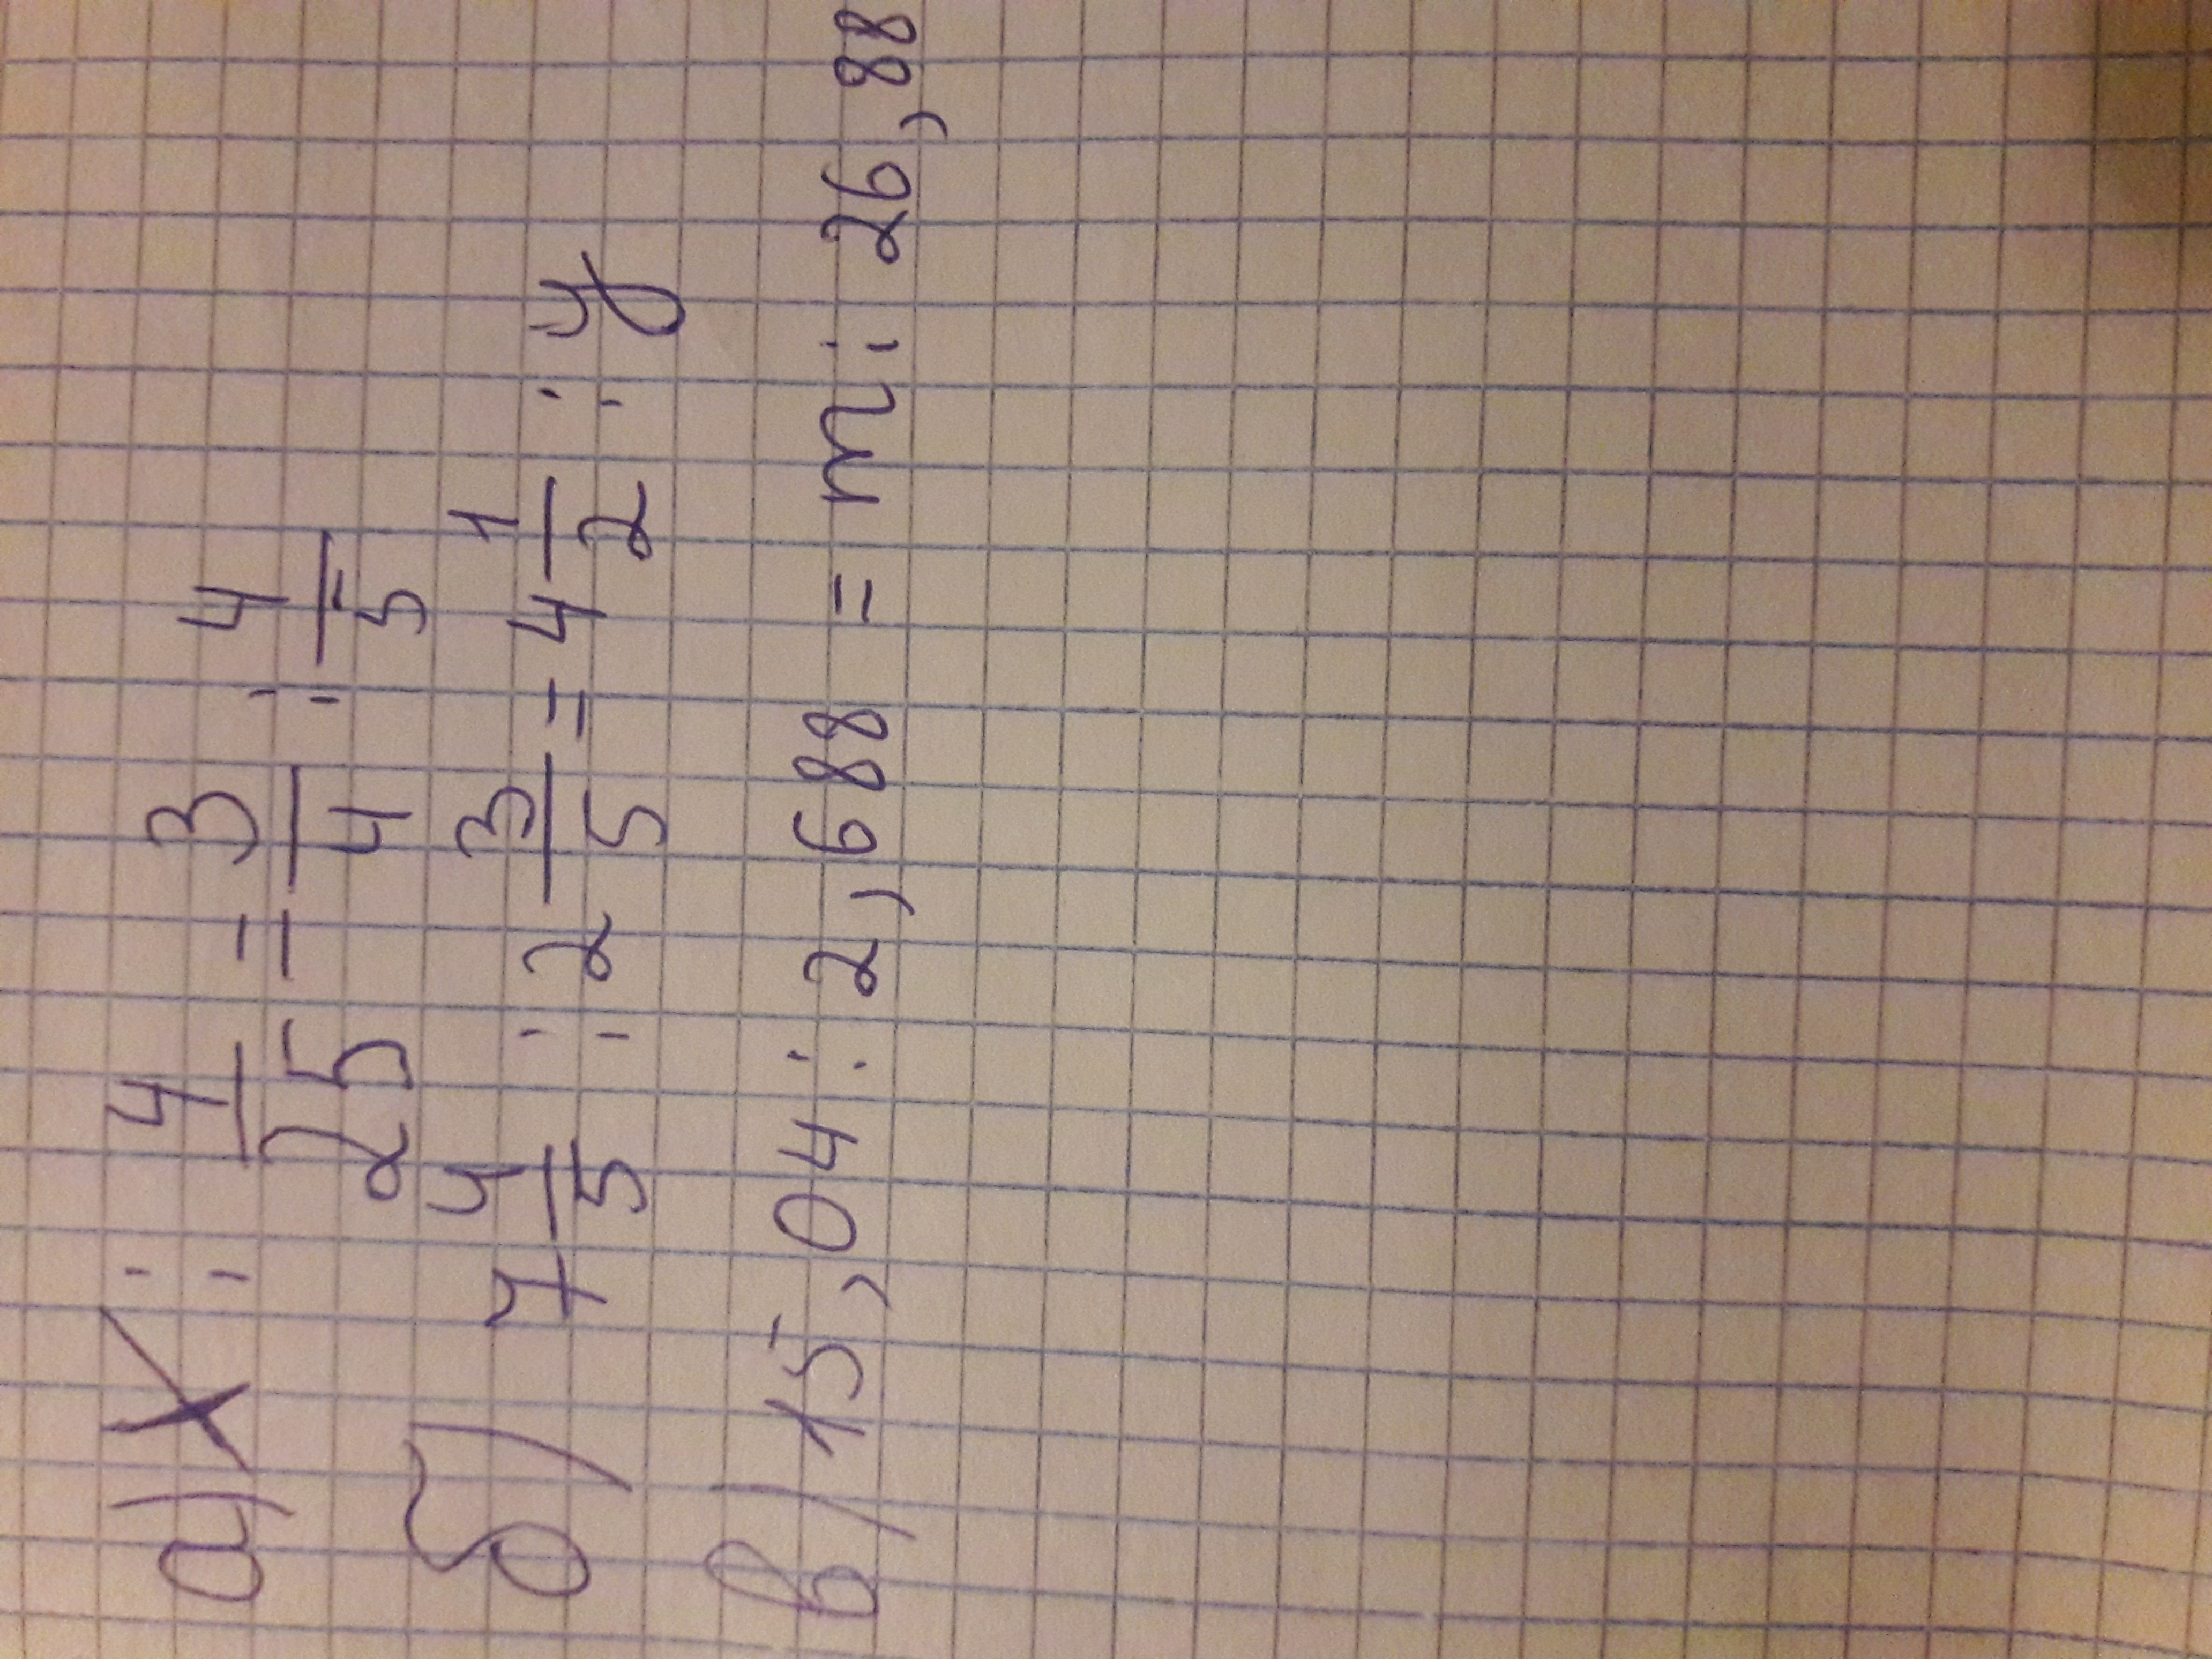 а) x : 4/25 = 3/4 : 4/5
б) 7 4/5 : 2 3/5 = 4 1/2 : y
в) 15,04 : 2,688 = m : 26,88